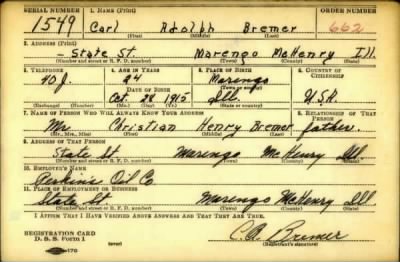 SERIAL NUMBER 1. NAME (Print) ORDER NUMBER
1549 Carl Adolph Bremer 662
(First) (Middle) (Last)
2. ADDRESS (Print)
- State St. Marengo McHenry Ill.
(Number and street or R. F. D. number) (Town) (County) (State)
3. TELEPHONE 4. AGE IN YEARS 5. PLACE OF BIRTH 6. COUNTRY OF CITIZENSHIP
90J. 24 Marengo
(Town or county)
DATE OF BIRTH
Oct. 28 1915 Ill U.S.A.
(Exchange) (Number) (Mo.) (Day) (Yr.) (State or country)
7. NAME OF PERSON WHO WILL ALWAYS KNOW YOUR ADDRESS 8. RELATIONSHIP OF THAT PERSON
Mr Christian Henry Bremer father.
(Mr., Mrs., Miss) (First) (Middle) (Last)
9. ADDRESS OF THAT PERSON
State St Marengo McHenry Ill.
(Number and street or R. F. D. number) (Town) (County) (State)
10. EMPLOYER'S NAME
Perkins Oil Co.
11. PLACE OF EMPLOYMENT OR BUSINESS
State St Marengo McHenry Ill
(Number and street or R. F. D. number) (Town) (County) (State)
I AFFIRM THAT I HAVE VERIFIED ABOVE ANSWERS AND THAT THEY ARE TRUE.
REGISTRATION CARD
D. S. S. Form 1 (over) C. A. Bremer
(Registrant's signature)